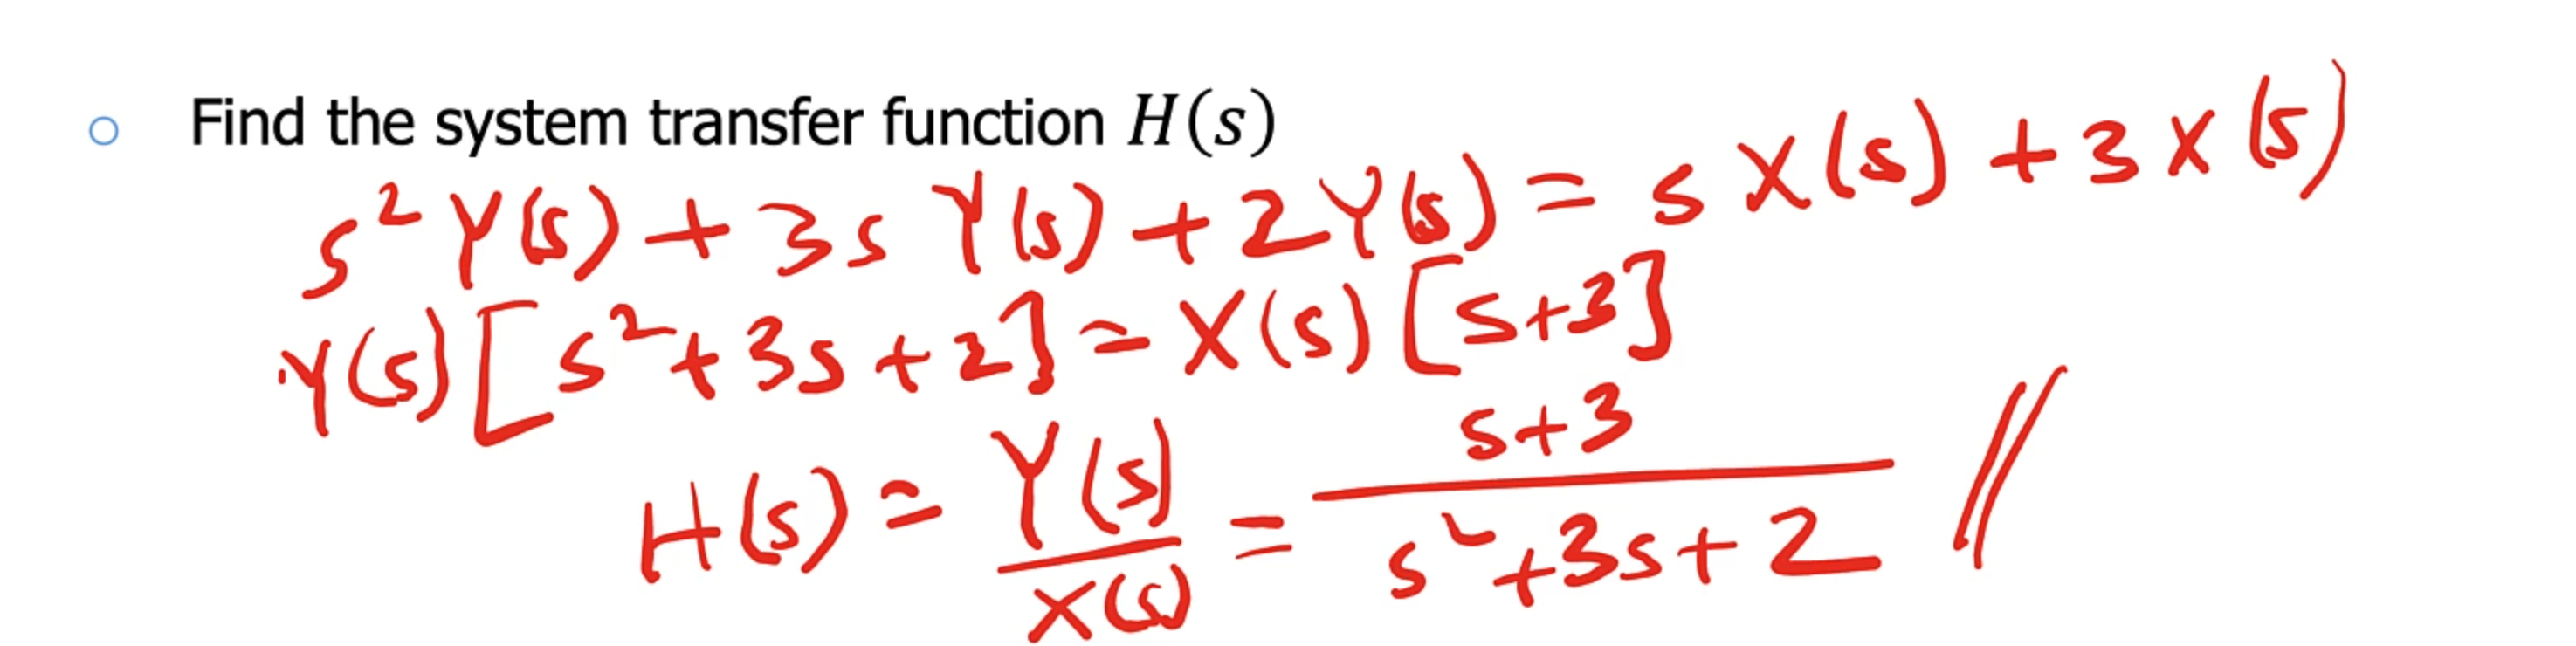 Find the system transfer function H(s)
s² Y(s) + 3s Y(s) + 2Y(s) = s X(s) + 3 X(s)
Y(s) [s² + 3s + 2] = X(s) [s+3]
H(s) = Y(s)/X(s) = s+3/s²+3s+2 //